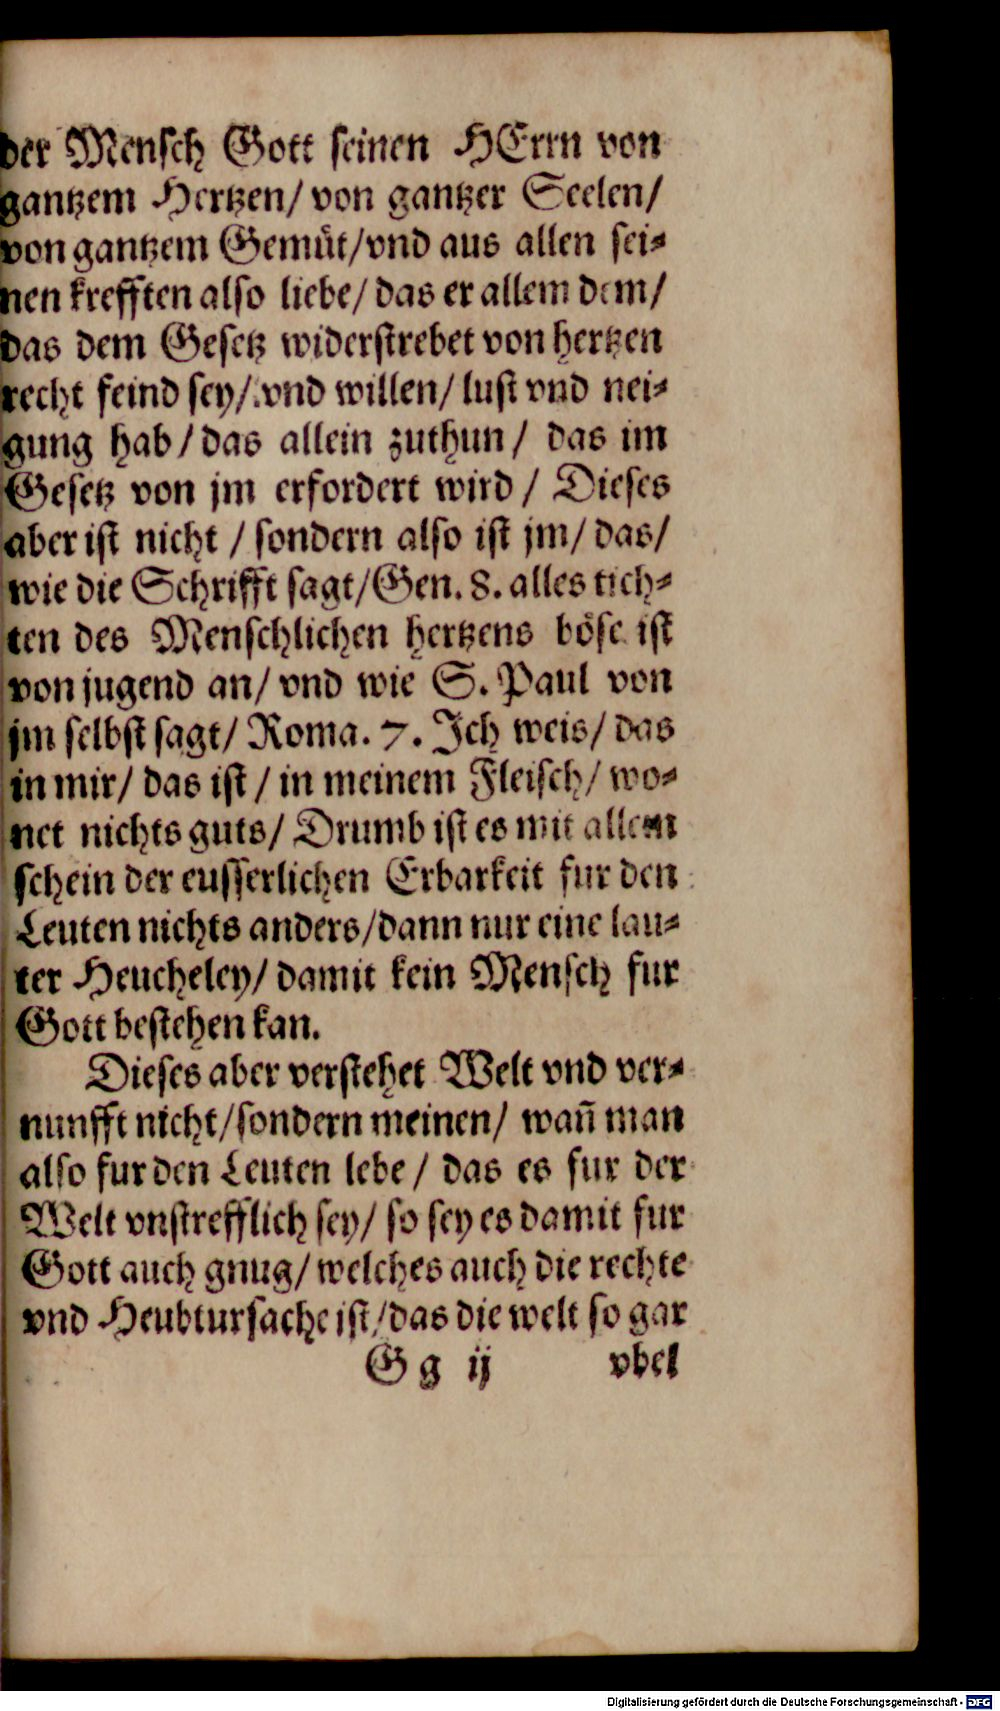 der Mensch Gott seinen HErrn von
gantzem Hertzen/ von gantzer Seelen/
von gantzem Gemüt/vnd aus allen sei⸗
nen krefften also liebe/ das er allem dem/
das dem Gesetz widerstrebet von hertzen
recht feind sey/ vnd willen/ lust vnd nei⸗
gung hab / das allein zuthun / das im
Gesetz von jm erfordert wird / Dieses
aber ist nicht / sondern also ist jm/ das/
wie die Schrifft sagt/Gen. 8. alles tich⸗
ten des Menschlichen hertzens böse ist
von jugend an/ vnd wie S. Paul von
jm selbst sagt/ Roma. 7. Ich weis/ das
in mir/ das ist / in meinem Fleisch/ wo⸗
net nichts guts/ Drumb ist es mit allem
schein der eusserlichen Erbarkeit fur den
Leuten nichts anders/dann nur eine lau⸗
ter Heucheley/ damit kein Mensch fur
Gott bestehen kan.
Dieses aber verstehet Welt vnd ver⸗
nunfft nicht/sondern meinen/ wañ man
also fur den Leuten lebe / das es fur der
Welt vnstrefflich sey/ so sey es damit fur
Gott auch gnug/ welches auch die rechte
vnd Heubtursache ist/das die welt so gar
G g ij vbel
Digitalisierung gefördert durch die Deutsche Forschungsgemeinschaft - DFG